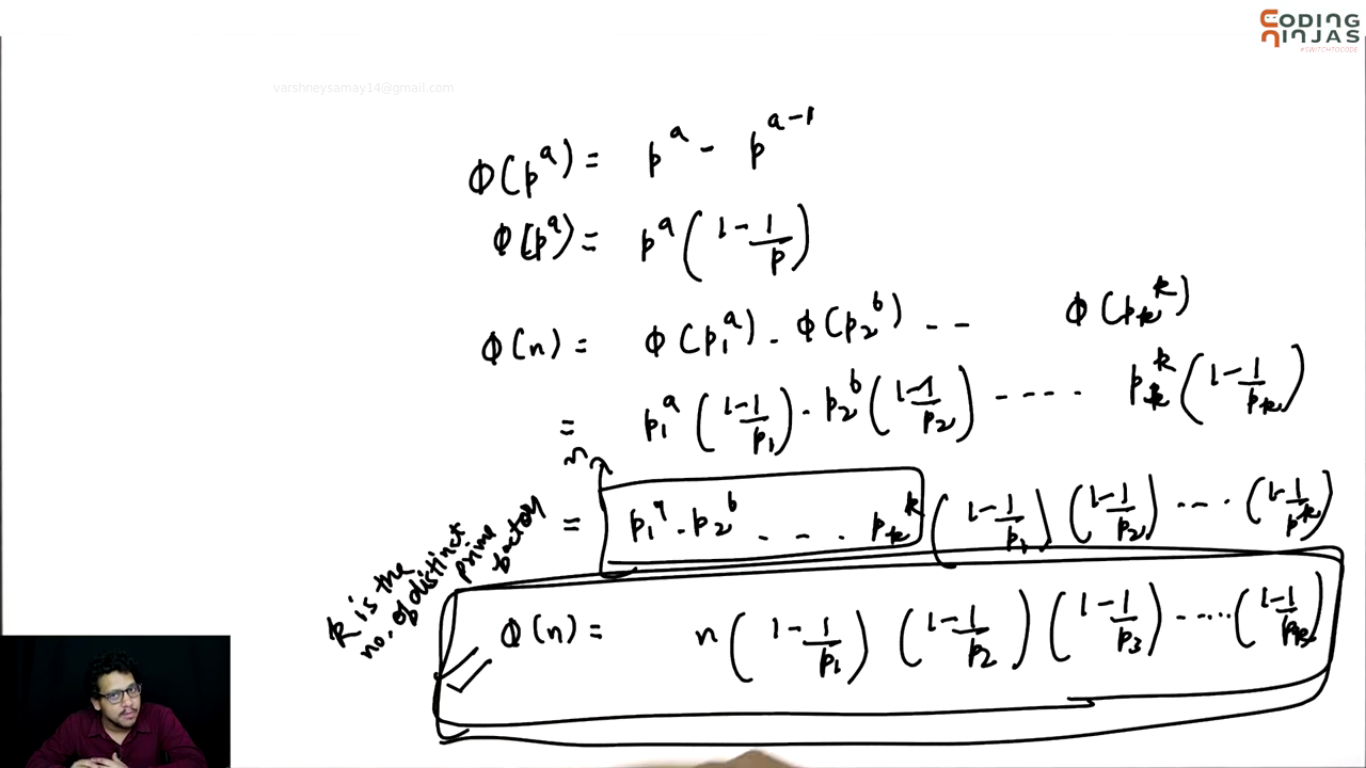 CODING
NINJAS
#SWITCHTOCODE
varshneysamay14@gmail.com
Φ(p^a) = p^a - p^{a-1}
Φ(p^a) = p^a (1 - 1/p)
Φ(n) = Φ(p₁^a) . Φ(p₂^b) -- Φ(p_k^k)
= p₁^a (1 - 1/p₁) . p₂^b (1 - 1/p₂) ---- p_k^k (1 - 1/p_k)
n
= p₁^a . p₂^b . - . p_k^k (1 - 1/p₁) (1 - 1/p₂) ---- (1 - 1/p_k)
k is the
no. of distinct
prime
factors
Φ(n) = n (1 - 1/p₁) (1 - 1/p₂) (1 - 1/p₃) ----- (1 - 1/p_k)